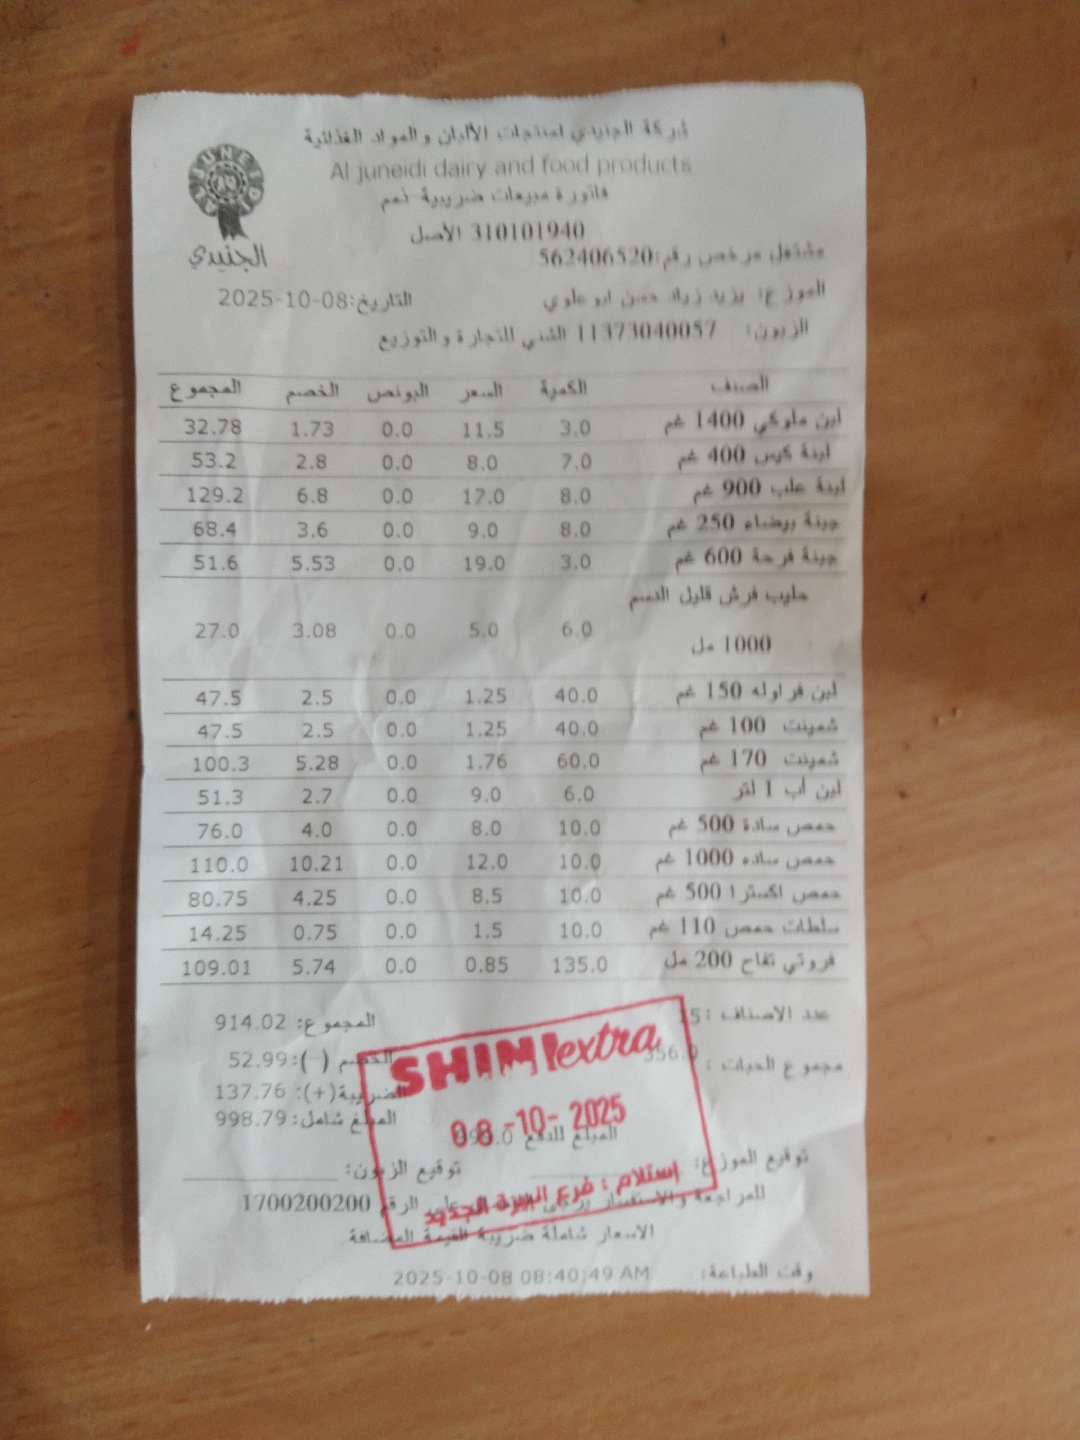 شركة الجنيدي لمنتجات الألبان والمواد الغذائية
Al juneidi dairy and food products
فاتورة مبيعات ضريبية ذمم
310101940 الأصل
مشتغل مرخص رقم:562406520
AL JUNEIDI
الجنيدي
الموزع: يزيد زياد حسن ابو علوي التاريخ:2025-10-08
الزبون: 11373040057 الشني للتجارة والتوزيع
الصنف الكمية السعر البونص الخصم المجموع
لبن ملوكي 1400 غم 3.0 11.5 0.0 1.73 32.78
لبنة كيس 400 غم 7.0 8.0 0.0 2.8 53.2
لبنة علب 900 غم 8.0 17.0 0.0 6.8 129.2
جبنة بيضاء 250 غم 8.0 9.0 0.0 3.6 68.4
جبنة فرحة 600 غم 3.0 19.0 0.0 5.53 51.6
حليب فرش قليل الدسم
1000 مل 6.0 5.0 0.0 3.08 27.0
لبن فراوله 150 غم 40.0 1.25 0.0 2.5 47.5
شمينت 100 غم 40.0 1.25 0.0 2.5 47.5
شمينت 170 غم 60.0 1.76 0.0 5.28 100.3
لبن أب 1 لتر 6.0 9.0 0.0 2.7 51.3
حمص سادة 500 غم 10.0 8.0 0.0 4.0 76.0
حمص ساده 1000 غم 10.0 12.0 0.0 10.21 110.0
حمص اكسترا 500 غم 10.0 8.5 0.0 4.25 80.75
سلطات حمص 110 غم 10.0 1.5 0.0 0.75 14.25
فروتي تفاح 200 مل 135.0 0.85 0.0 5.74 109.01
عدد الاصناف :15 المجموع: 914.02
الخصم (-):52.99
مجموع الحبات : 356.0
الضريبة(+): 137.76
المبلغ شامل: 998.79
المبلغ للدفع
SHINI extra
08-10-2025
إستلام : فرع البيرة الجديد
توقيع الموزع: توقيع الزبون:
للمراجعة والاستفسار يرجى على الرقم 1700200200
الاسعار شاملة ضريبة القيمة المضافة
وقت الطباعة: 2025-10-08 08:40:49 AM